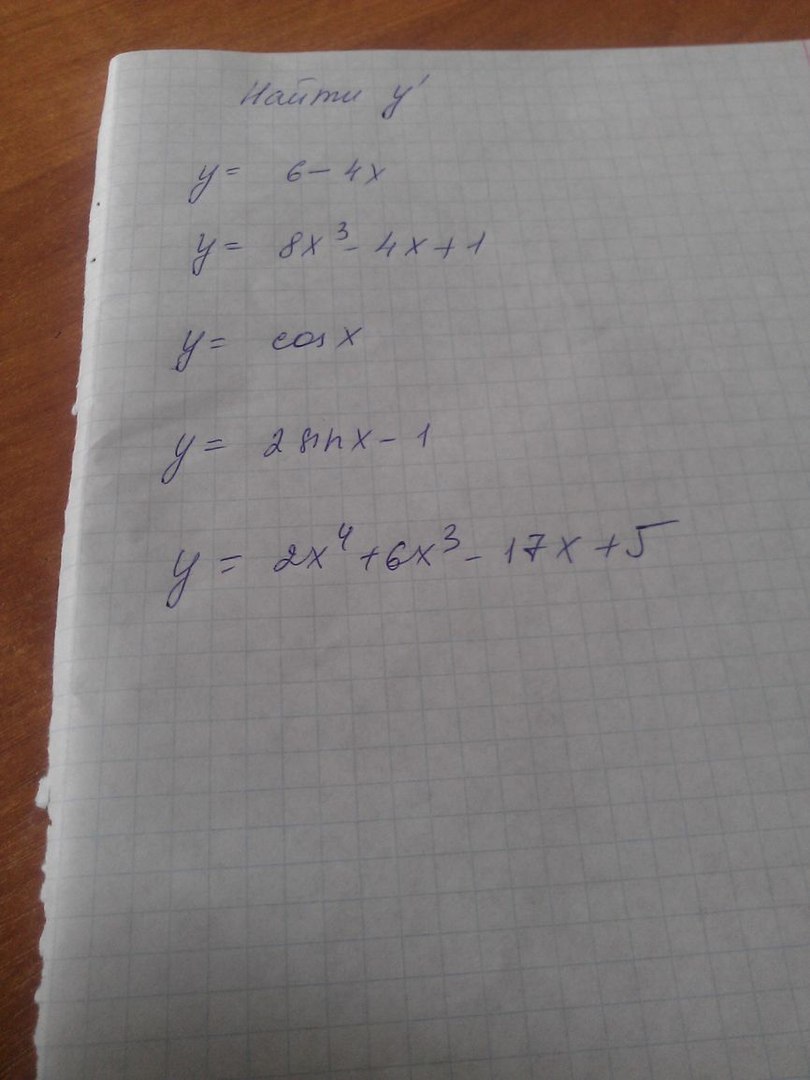 Найти y'
y = 6 - 4x
y = 8x³ - 4x + 1
y = cos x
y = 2 sin x - 1
y = 2x⁴ + 6x³ - 17x + 5